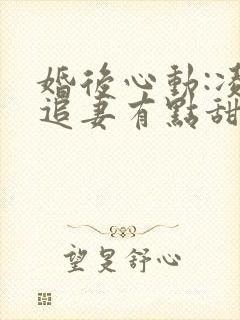 婚後心動:凌
追妻有點甜
望旻舒心